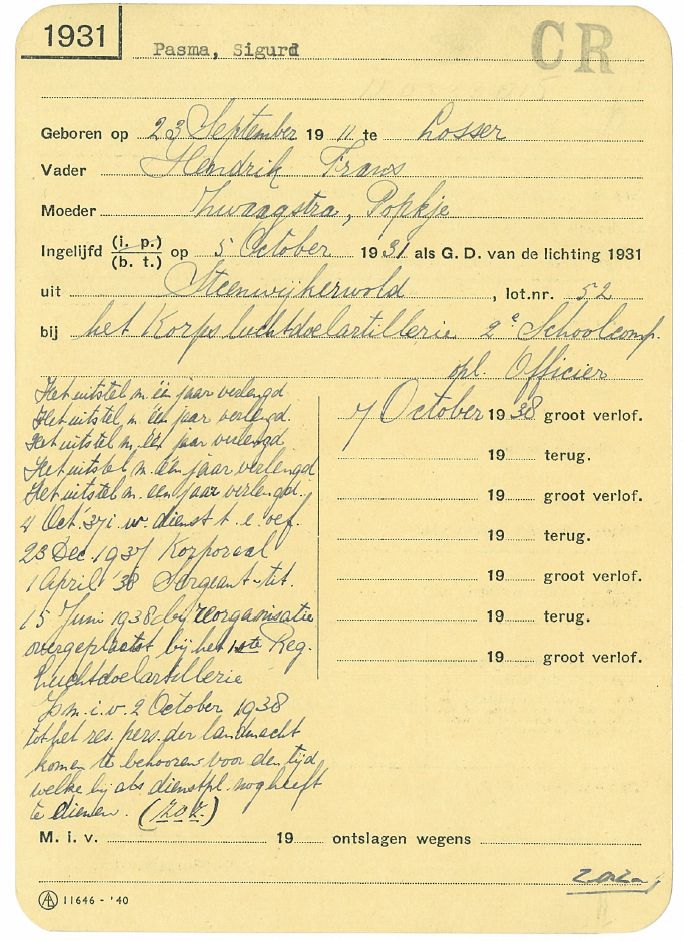 1931
Pasma, Sigurd
CR
Geboren op 23 September 19 11 te Losser
Vader Hendrik Frans
Moeder Zwaagstra, Popkje
Ingelijfd (i. p.) (b. t.) op 5 October 1931 als G. D. van de lichting 1931
uit Steenwijkerwold, lot.nr. 52
bij het Korps Luchtdoelartillerie 2e Schoolcomp.
opl. Officier
Het uitstel m. één jaar verlengd
Het uitstel m. één jaar verlengd.
Het uitstel m. één jaar verlengd
Het uitstel m. één jaar verlengd
Het uitstel m. een jaar verlengd.
4 Oct. '37 i. w. dienst t. e. oef.
23 Dec. 1937 Korporaal
1 April '38 Sergeant-tit.
15 Juni 1938 bij reorganisatie
overgeplaatst bij het 1ste Reg.
Luchtdoelartillerie
m. i. v. 2 October 1938
tot het res. pers. der landmacht
komen te behooren voor den tijd
welke hij als dienstpl. nog heeft
te dienen. (z.o.z.)
7 October 19 38 groot verlof.
19 terug.
19 groot verlof.
19 terug.
19 groot verlof.
19 terug.
19 groot verlof.
M. i. v. 19 ontslagen wegens
z.o.z.
AL 11646 - '40